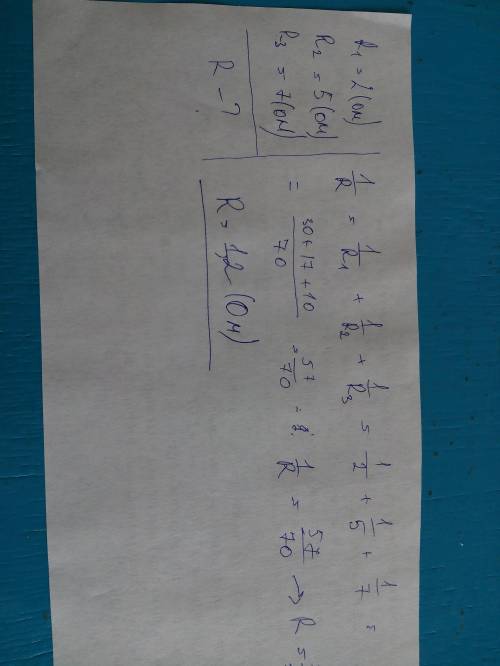 R₁ = 2 (Ом)
R₂ = 5 (Ом)
R₃ = 7 (Ом)
R – ?
1/R = 1/R₁ + 1/R₂ + 1/R₃ = 1/2 + 1/5 + 1/7 =
= (30+17+10)/70 = 57/70 = 1/R = 57/70 → R =
R = 1,2 (Ом)